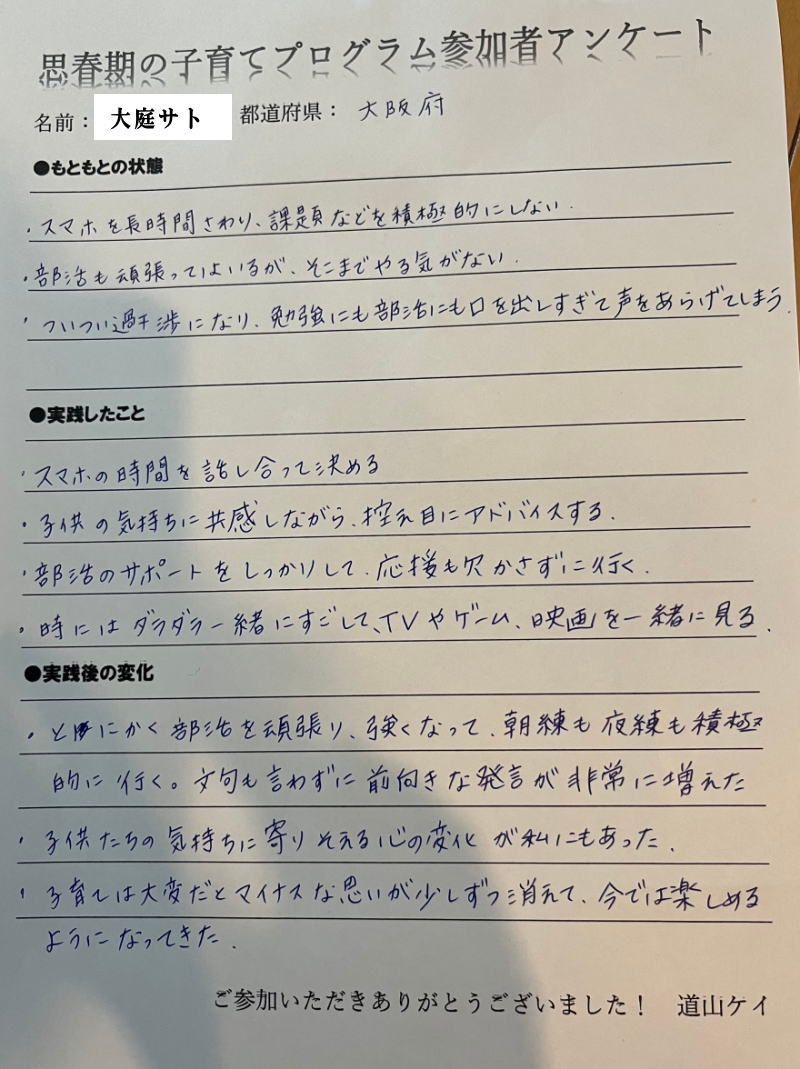 思春期の子育てプログラム参加者アンケート
名前： 大庭サト 都道府県： 大阪府
●もともとの状態
・スマホを長時間さわり、課題などを積極的にしない.
・部活も頑張ってはいるが、そこまでやる気がない.
・ついつい過干渉になり、勉強にも部活にも口を出しすぎて声をあらげてしまう.
●実践したこと
・スマホの時間を話し合って決める
・子供の気持ちに共感しながら、控え目にアドバイスする.
・部活のサポートをしっかりして、応援も欠かさずに行く.
・時にはダラダラ一緒にすごして、TVやゲーム、映画を一緒に見る.
●実践後の変化
・とにかく部活を頑張り、強くなって、朝練も夜練も積極
的に行く。文句も言わずに前向きな発言が非常に増えた
・子供たちの気持ちに寄りそえる心の変化が私にもあった.
・子育ては大変だとマイナスな思いが少しずつ消えて、今では楽しめる
ようになってきた.
ご参加いただきありがとうございました！ 道山ケイ